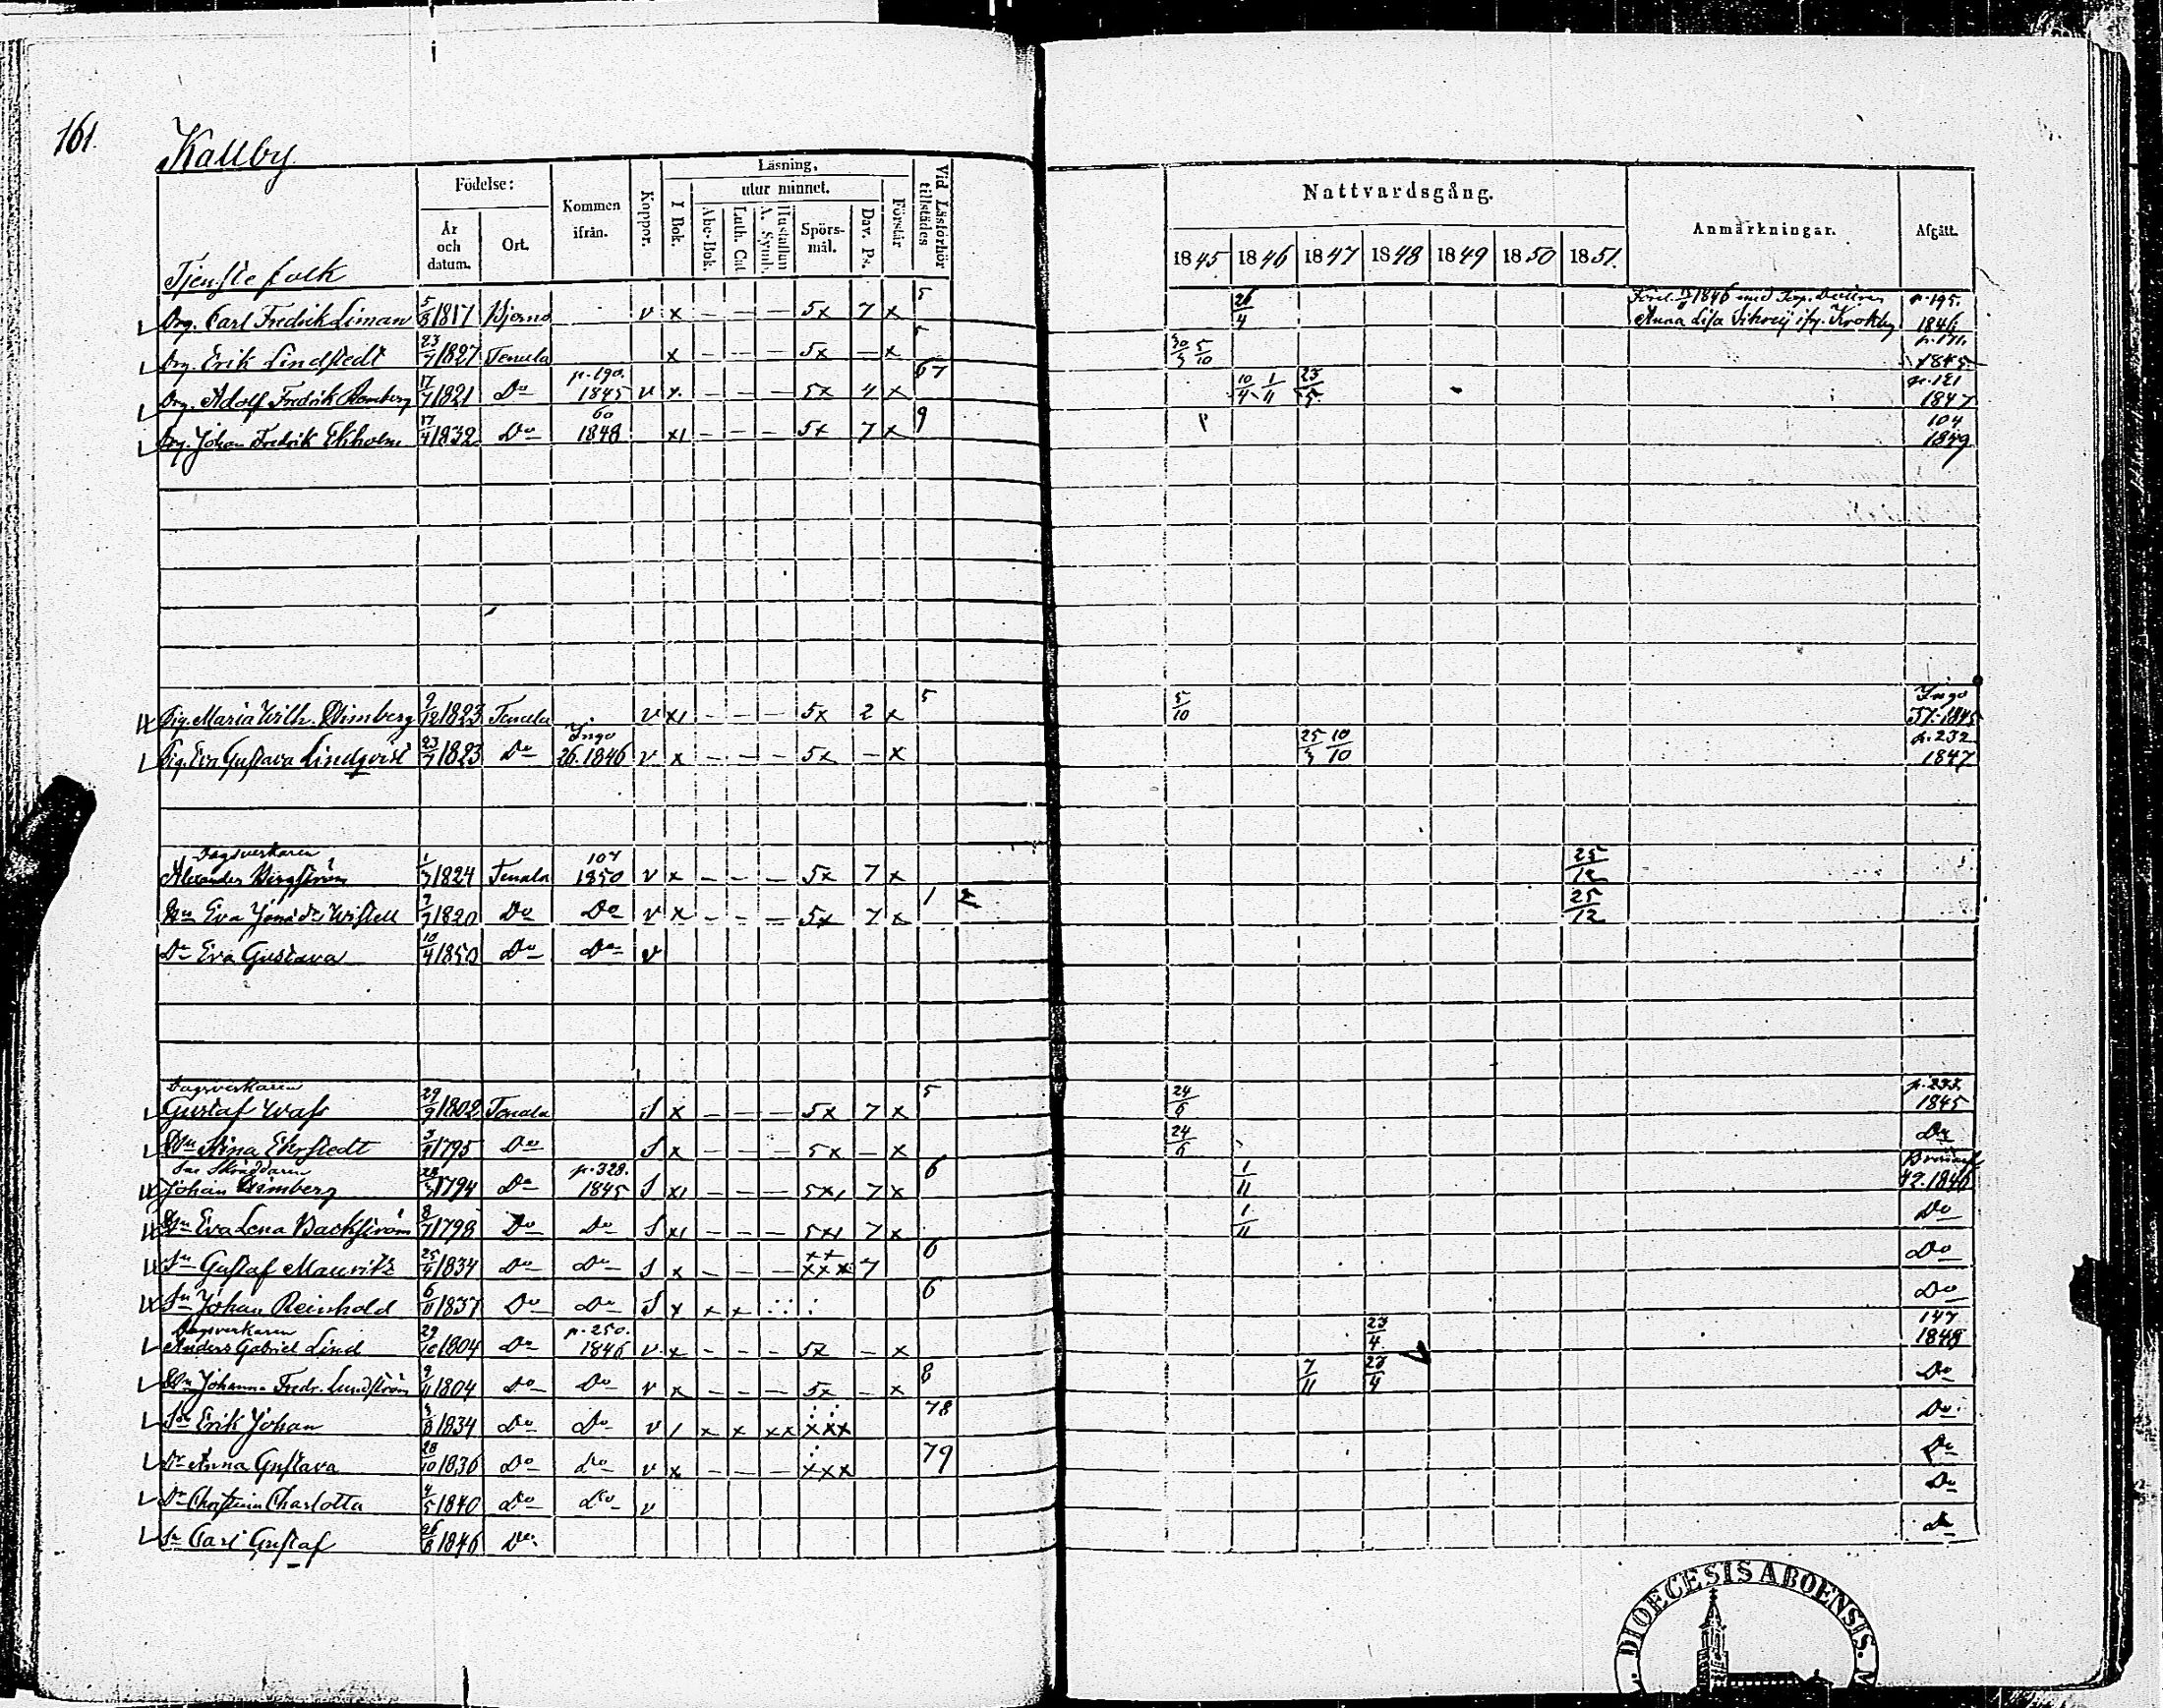 161.
Kallby
Födelse:
Kommen ifrån.
Koppor.
Läsning,
utur minnet.
I Bok.
Abc-Bok.
Luth. Cat
Hustaflan A. Symb.
Spörsmål.
Dav. Ps.
Förstår
Vid Läsförhör tillstädes
År och datum.
Ort.
Nattvardsgång.
1845 1846 1847 1848 1849 1850 1851
Anmärkningar.
Afgått.
Tjenstefolk
Drg. Carl Fredrik Liman 5/8 1817 Bjerno v x - - - 5x 7 x 5 26/4 1846 med Anna Lisa ifr. Krokby p. 195. 1846
Drg. Erik Lindstedt 23/7 1827 Tenala x - - - 5x - x 5 30/3 5/10 p. 171. 1845
Drg. Adolf Fredrik Romberg 17/7 1821 Do p. 190. 1845 v x - - - 5x 4 x 67 10/4 1/11 25/5 p. 121 1847
Drg. Johan Fredrik Ekholm 17/4 1832 Do 60 1848 x1 - - - 5x 7 x 9 104 1849
Pig. Maria Wilh. Stimberg 9/12 1823 Tenala v x1 - - - 5x 2 x 5 5/10 Ingo 57. 1845
Pig. Eva Gustava Lindqvist 23/7 1823 Do Ingo 26. 1846 v x - - - 5x - x 25/3 10/10 p. 232 1847
Dagsverkaren
Alexander Bergström 1/3 1824 Tenala 107 1850 v x - - - 5x 7 x 25/12
Hu Eva Jonæ dr Wistell 7/7 1820 Do Do v x - - - 5x 7 x 1 2 25/12
Dr Eva Gustava 10/4 1850 Do Do v
Dagsverkaren
Gustaf Wass 29/9 1802 Tenala S x - - - 5x 7 x 5 24/6 p. 233 1845
Hu Stina Ekestedt 3/4 1795 Do S x - - - 5x - x 24/6 Do
Sne Skräddaren
Johan Stimberg 28/3 1794 Do p. 328. 1845 S x1 - - - 5x1 7 x 6 1/11 Bromarf 42. 1846
Hu Eva Lena Backström 8/7 1798 Do Do S x1 - - - 5x1 7 x 1/11 Do
Sn Gustaf Mauritz 25/4 1834 Do Do S x - - - xx xxx 7 6 Do
Sn Johan Reinhold 6/11 1837 Do Do S x x x 6 Do
Dagsverkaren
Anders Gabriel Lind 29/10 1804 Do p. 250. 1846 v x - - - 5x - x 23/4 147 1848
Hu Johanna Fredr. Lundström 9/11 1804 Do Do v x - - - 5x - x 8 7/11 23/4 Do
Sn Erik Johan 3/8 1834 Do Do v / x x xx xxx 78 Do
Dr Anna Gustava 28/10 1836 Do Do v x - - - xxx 79 Do
Dr Christina Charlotta 4/5 1840 Do Do v Do
Sn Carl Gustaf 26/8 1846 Do Do
DIOECESIS ABOENSIS.